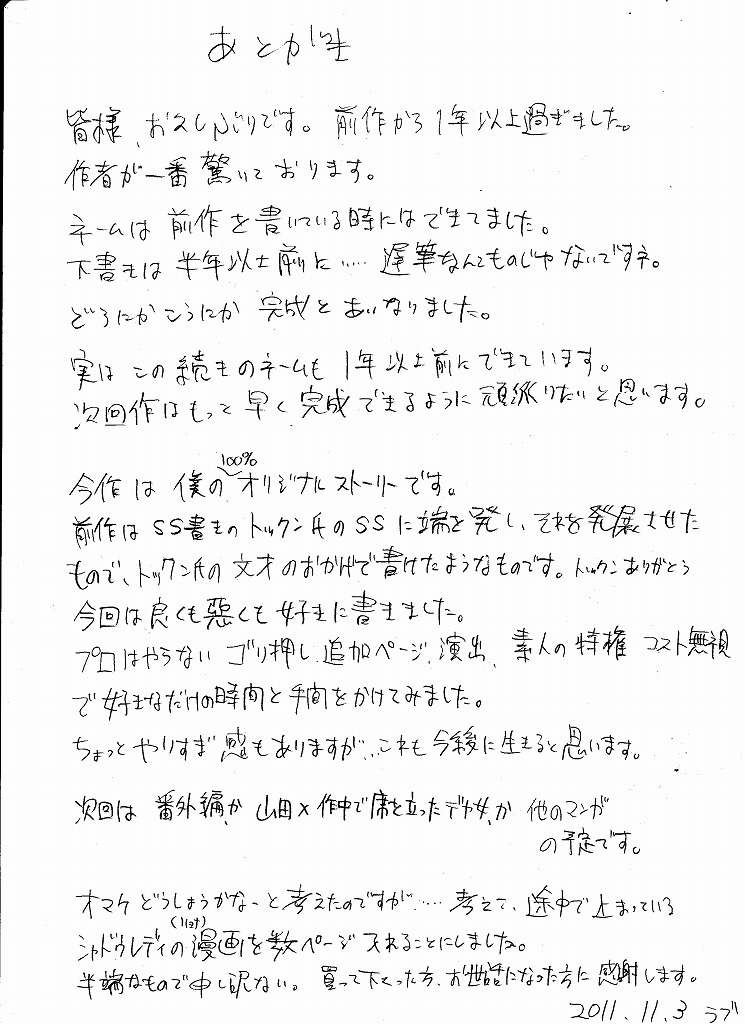 あとがき
皆様、お久しぶりです。前作から1年以上過ぎました。
作者が一番驚いております。
ネームは前作を書いている時にはできてました。
下書きは半年以上前に‥‥遅筆なんてものじゃないですネ。
どうにかこうにか完成とあいなりました。
実はこの続きのネームも1年以上前にできています。
次回作はもっと早く完成できるように頑張りたいと思います。
100%
今作は僕のオリジナルストーリーです。
前作はSS書きのトックン氏のSSに端を発し、それを発展させた
もので、トックン氏の文才のおかげで書けたようなものです。トックンありがとう
今回は良くも悪くも好きに書きました。
プロはやらないゴリ押し追加ページ、演出、素人の特権コスト無視
で好きなだけの時間と手間をかけてみました。
ちょっとやりすぎ感もありますが、これも今後に生きると思います。
次回は番外編か山田×作中で席を立ったデカ女、か他のマンガ
の予定です。
オマケどうしようかなーと考えたのですが‥‥考えて、途中で止まっている
シャドウレディの漫画を数ページ入れることにしました。
半端なもので申し訳ない。買って下さった方、お世話になった方に感謝します。
2011.11.3 ラブ